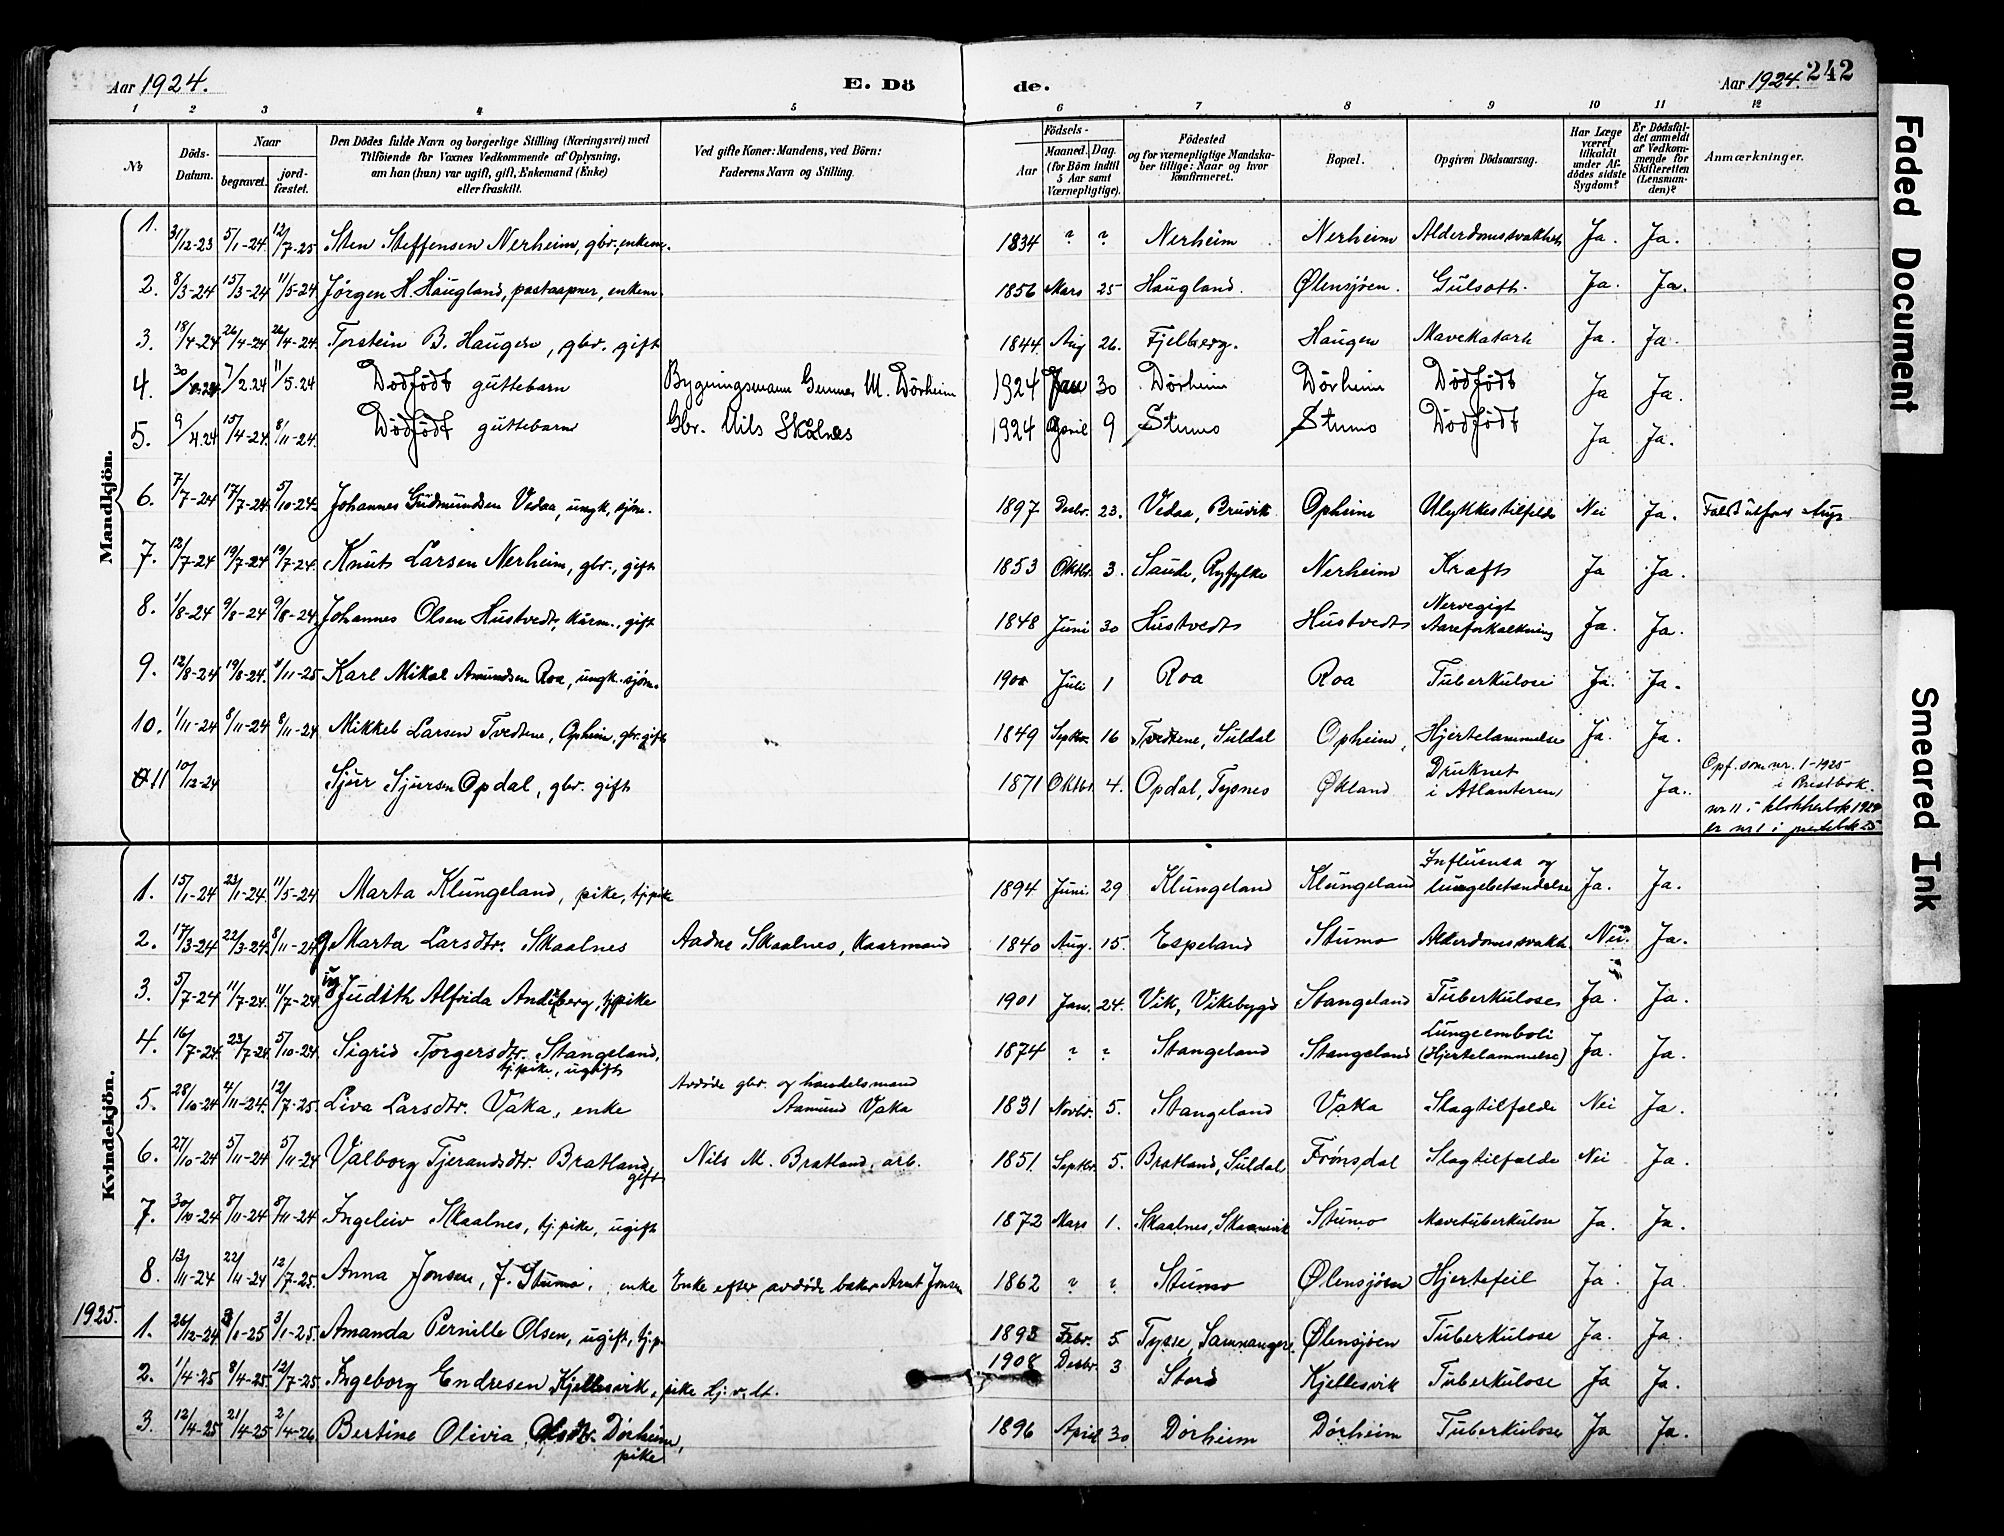 Aar 1924. E. Dö de. Aar 1924. 242
1 2 3 4 5 6 7 8 9 10 11 12
№ Döds-Datum. Naar begravet. jord-fæstet. Den Dödes fulde Navn og borgerlige Stilling (Næringsvei) med Tilföiende for Voxnes Vedkommende af Oplysning, om han (hun) var ugift, gift, Enkemand (Enke) eller fraskilt. Ved gifte Koner: Mandens, ved Börn: Faderens Navn og Stilling. Födsels- Aar Maaned. Dag. (for Börn indtil 5 Aar samt Værnepligtige). Födested og for værnepligtige Mandska-ber tillige: Naar og hvor konfirmeret. Bopæl. Opgiven Dödsaarsag. Har Læge været tilkaldt under Af-dödes sidste Sygdom? Er Dödsfal-det anmeldt af Vedkom-mende for Skifteretten (Lensman-den)? Anmærkninger.
Mandkjön.
1. 31/12-23 5/1-24. 12/7-25 Sten Steffensen Nerheim, gbr, enkem. 1834 ? ? Nerheim Nerheim Alderdomssvakhet Ja. Ja.
2. 8/3-24 15/3-24 11/5-24 Jørgen H. Haugland, postaapner, enkem. 1856 Mars 25 Haugland. Ølensjøen. Gulsott. Ja. Ja.
3. 18/4-24 26/4-24 26/4-24. Torstein B. Haugen, gbr. gift 1844. Aug 26. Fjelberg. Haugen Mavekatarh Ja. Ja.
4. 30/1.24 7/2.24 11/5.24 Dødfødt guttebarn Bygningsmann Gunnar M. Dörheim 1924 Jan 30 Dörheim Dörheim Dødfødt Ja Ja.
5. 9/4.24 15/4-24. 8/11-24. Dødfødt guttebarn Gbr. Nils Skålnes 1924 April 9 Stumo Stumo Dødfødt Ja Ja.
6. 7/7-24 17/7-24 5/10-24. Johannes Gudmundsen Vedaa, ungk, sjøm. 1897 Desbr. 23. Vedaa, Bruvik Opheim Ulykkestilfelde Nei Ja.
7. 12/7-24 19/7-24 19/7-24. Knut Larsen Nerheim, gbr., gift 1853 Oktbr. 3. Saude, Ryfylke Nerheim Kræft Ja Ja.
8. 1/8-24 9/8-24 9/8-24. Johannes Olsen Hustvedt, kårm., gift 1848 Juni 30 Hustvedt Hustvedt Nervegigt Aareforkalkning Ja. Ja.
9. 12/8-24 19/8-24. 8/11-25 Karl Mikal Amundsen Roa, ungk. sjøm. 1900 Juli 1 Roa Roa Tuberkulose Ja. Ja.
10. 1/11-24 8/11-24 8/11-24 Mikkel Larsen Tvedtene, Opheim, gbr. gift 1849 Septbr. 16 Tvedtene, Suldal Opheim, Hjertelammelse Ja. Ja.
11 10/12-24 Sjur Sjursen Opdal, gbr. gift 1871 Oktbr. 4. Opdal, Tysnes Økland Druknet i Atlanteren Ja. Opf. som nr. 1-1925
i Prestbok.
nr 11 i klokkerbok 1924
er nr 1 i prestebok 25
Kvindekjön.
1. 15/1-24 23/1-24. 11/5-24 Marta Klungeland, pike, tj.pike 1894 Juni 29 Klungeland Klungeland Influensa og lungebetændelse Ja. Ja.
2. 17/3-24 22/3-24. 8/11-24 g Marta Larsdtr. Skaalnes Aadne Skaalnes, kaarmand 1840 Aug. 15. Espeland Stumo Alderdomssvakh. Nei. Ja.
3. 5/7-24 11/7-24. 11/7-24. ug Judith Alfrida Andeberg, tj.pike 1901 Jan. 24. Vik, Vikebygd Stangeland Tuberkulose Ja. Ja.
4. 16/7-24. 23/7-24 5/10-24. Sigrid Torgersdtr. Stangeland, tj.pike, ugift 1874 ? ? Stangeland Stangeland Lungeemboli (Hjertelammelse) Ja. Ja.
5. 28/10-24 4/11-24. 12/7-25. Liva Larsdtr. Vaka, enke Avdøde gbr. og handelsmand Aamund Vaka 1831 Novbr. 5. Stangeland Vaka Slagtilfælde Nei Ja.
6. 27/10-24 5/11-24 5/11-24 Valborg Tjerandsdtr. Bratland gift Nils M. Bratland, arb. 1851. Septbr. 5. Bratland, Suldal Frønsdal Slagtilfælde Nei Ja.
7. 30/10-24 8/11-24 8/11-24 Ingeleiv Skaalnes, tj.pike, ugift 1872 Mars 1. Skaalnes, Skaanevik Stumo Mavetuberkulose Ja. Ja.
8. 13/11-24 22/11-24 12/7-25. Anna Jonsen, f. Stumo, enke Enke efter avdøde baker Arnt Jonsen 1862 ? ? Stumo Ølensjøen Hjertefeil Ja Ja.
1925.
1. 26/12-24 3/1-25 3/1-25. Amanda Pernille Olsen, ugift, tj.p. 1893 Febr. 5 Tysse, Samnanger. Ølensjøen Tuberkulose Ja. Ja.
2. 1/4-25 8/4-25 12/7-25 Ingeborg Endresen Kjellesvik, pike tj.v.lt. 1908 Desbr. 3 Stord Kjellesvik Tuberkulose Ja Ja.
3. 12/4-25 21/4-25 2/4-26 Bertine Olivia Olsdtr. Dörheim, pike 1896 April 30 Dörheim Dörheim Tuberkulose Ja Ja.
Faded Document
Smeared Ink